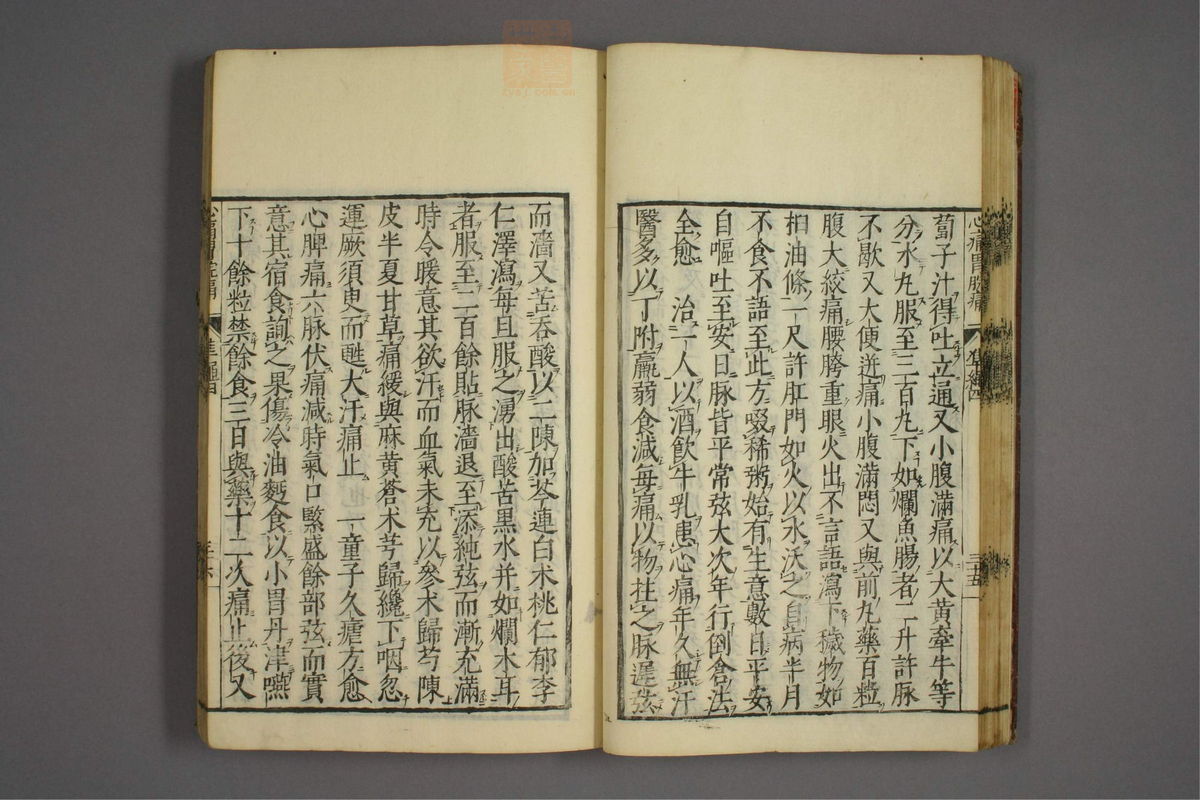 蔔子汁得吐立通又小腹滿痛以大黃牽牛等
分水丸服至三百丸下如爛魚腸者二升許脉
不歇又大便迸痛小腹滿悶又與前丸藥百粒
腹大絞痛腰胯重眼火出不言語瀉下穢物如
桕油條一尺許肛門如火以水沃之自病半月
不食不語至此方啜稀粥始有生意數日平安
自嘔吐至安日脉皆平常弦大次年行倒倉法
全愈 治一人以酒飲牛乳患心痛年久無汗
醫多以丁附羸弱食減每痛以物拄之脉遲弦
而濇又苦吞酸以二陳加芩連白朮桃仁郁李
仁澤瀉每旦服之湧出酸苦黑水并如爛木耳
者服至二百餘貼脉濇退至添純弦而漸充滿
時令暖意其欲汗而血氣未充以參朮歸芍陳
皮半夏甘草痛緩與麻黃蒼朮芎歸纔下咽忽
運厥須臾而甦大汗痛止 一童子久瘧方愈
心脾痛六脉伏痛減時氣口緊盛餘部弦而實
意其宿食詢之果傷冷油麪食以小胃丹津嚥
下十餘粒禁餘食三日與藥十二次痛止後又
心痛胃脘痛
三十五